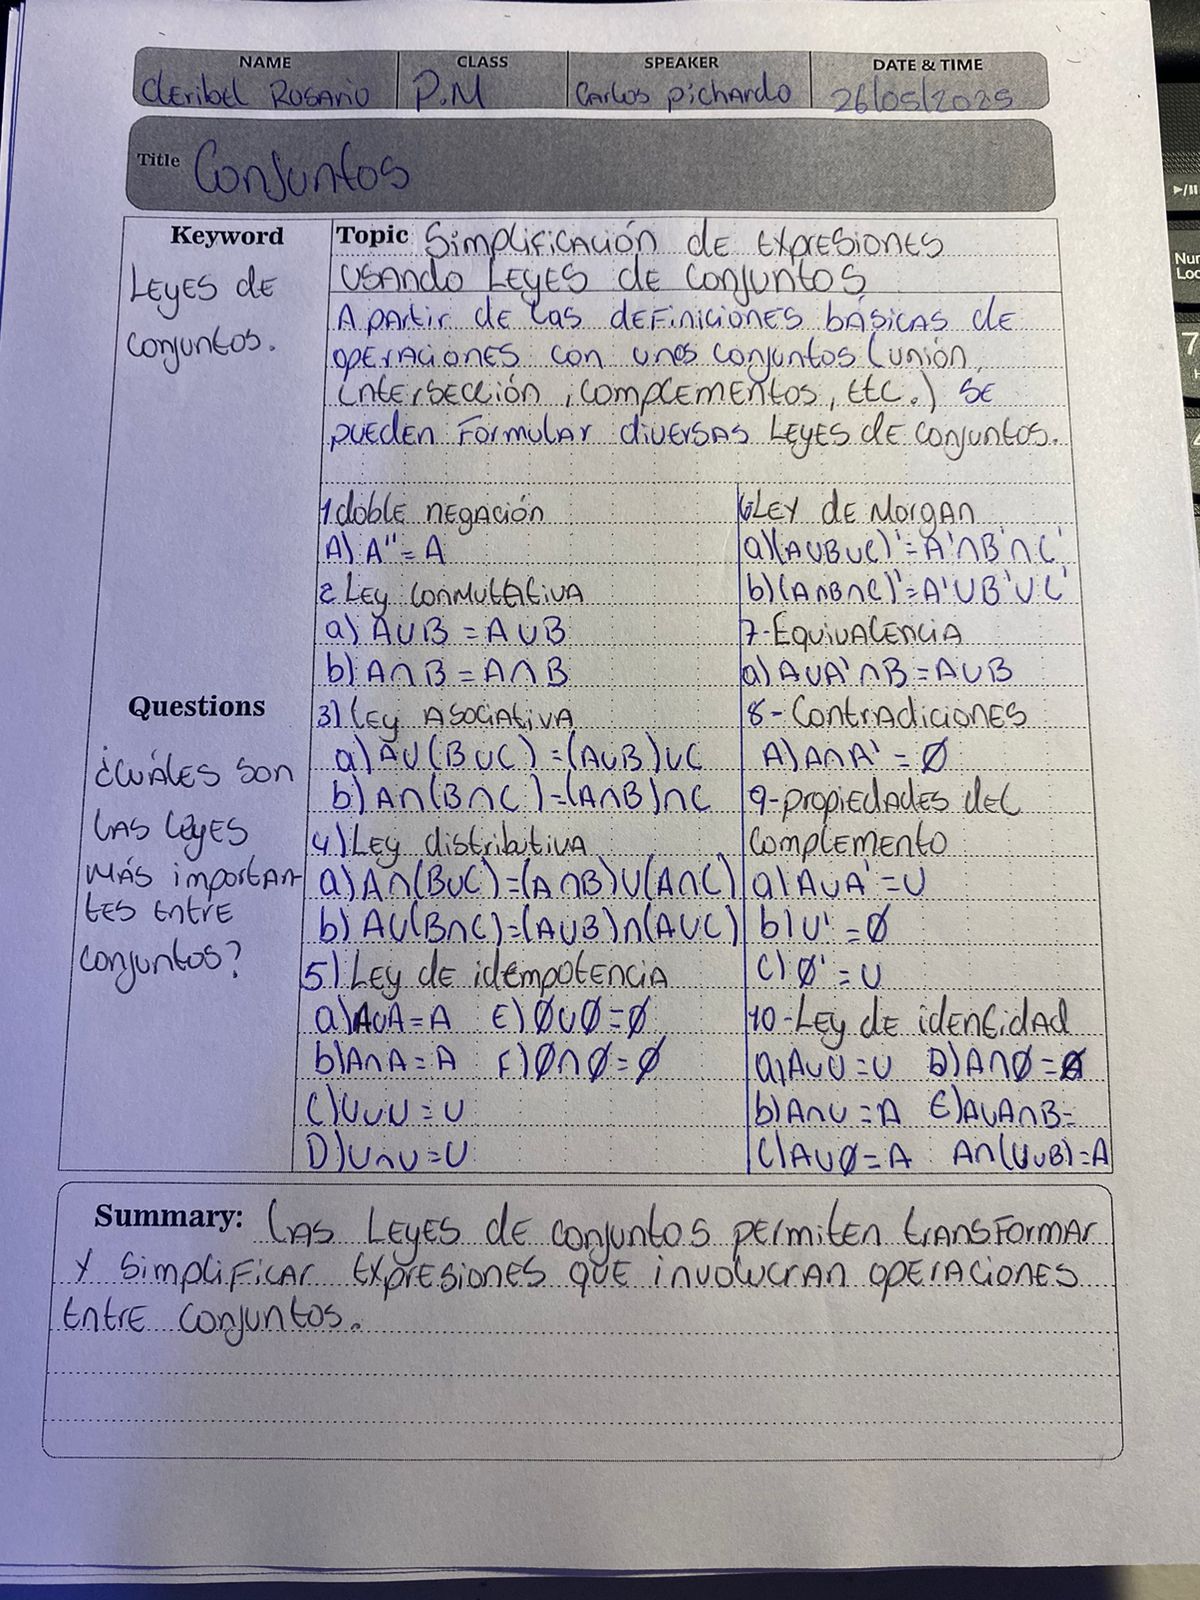 NAME CLASS SPEAKER DATE & TIME
Cleribel Rosario P.M Carlos Pichardo 26/05/2025
Title Conjuntos
Keyword
Leyes de
conjuntos.
Topic Simplificación de expresiones
usando leyes de conjuntos
A partir de las definiciones básicas de
operaciones con unos conjuntos (unión,
intersección, complementos, etc.) se
pueden formular diversas leyes de conjuntos.
Questions
¿cuáles son
las leyes
más importan-
tes entre
conjuntos?
1 doble negación
A) A''=A
2 Ley conmutativa
a) A∪B = A∪B
b) A∩B = A∩B
3) Ley asociativa
a) A∪(B∪C) = (A∪B)∪C
b) A∩(B∩C) = (A∩B)∩C
4) Ley distributiva
a) A∩(B∪C)=(A∩B)∪(A∩C)
b) A∪(B∩C)=(A∪B)∩(A∪C)
5) Ley de idempotencia
a) A∪A=A E) Ø∪Ø=Ø
b) A∩A=A F) Ø∩Ø=Ø
C) U∪U=U
D) U∩U=U
6 Ley de Morgan
a) (A∪B∪C)'=A'∩B'∩C'
b) (A∩B∩C)'=A'∪B'∪C'
7-Equivalencia
a) A∪A'∩B=A∪B
8-Contradiciones
A) A∩A' = Ø
9-propiedades del
complemento
a) A∪A'=U
b) U'=Ø
C) Ø'=U
10-Ley de identidad
a) A∪U=U D) A∩Ø=Ø
b) A∩U=A E) A∪A∩B=
C) A∪Ø=A A∩(U∪B)=A
Summary: Las leyes de conjuntos permiten transformar
y simplificar expresiones que involucran operaciones
entre conjuntos.